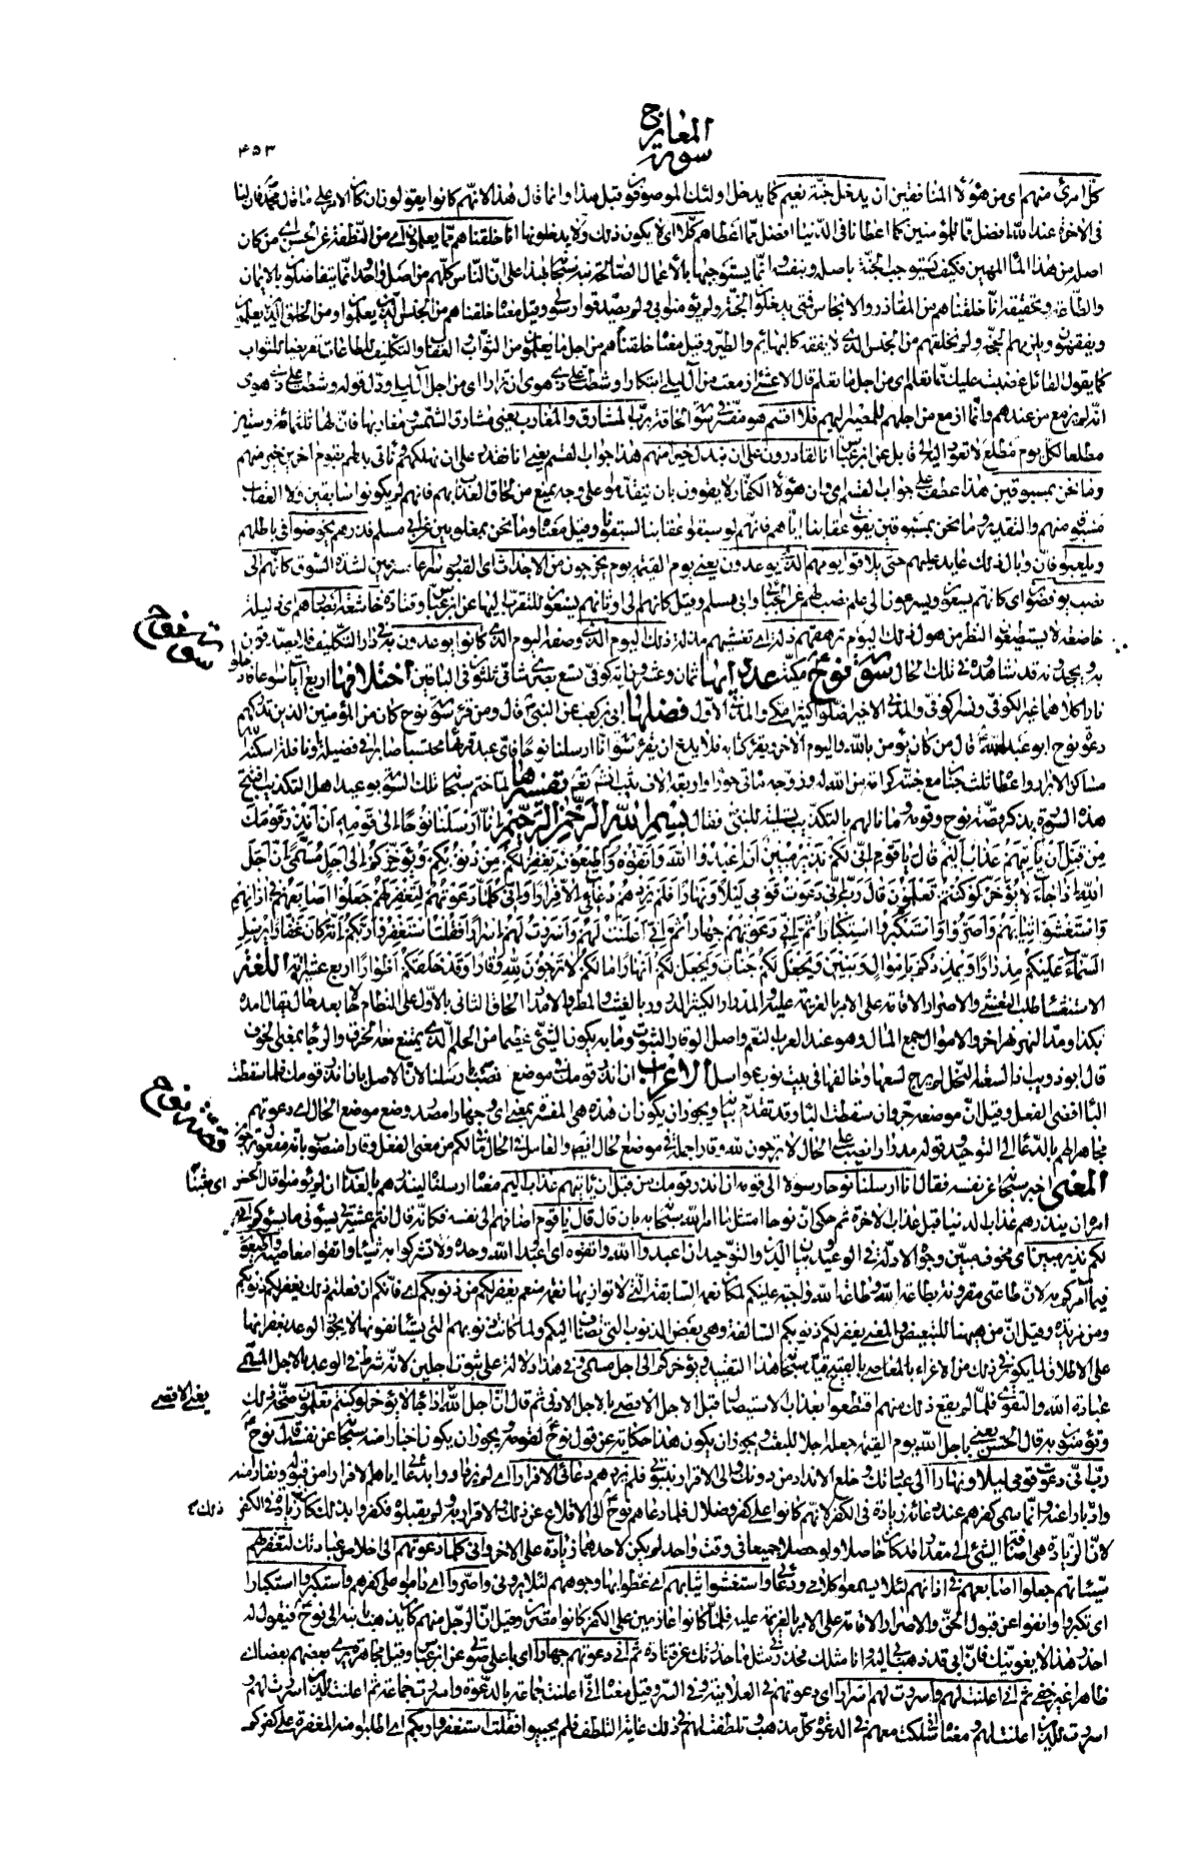 سورة المعارج
۴۵۳
كل امرئ منهم اى من هؤلاء المنافقين ان يدخل جنة نعيم كما يدخل اولئك الموصوفون قبل هذا وانما قال هذا لانهم كانوا يقولون ان كان الامر على ما قال محمد فان لنا
فى الاخرة عند الله افضل مما للمؤمنين كما اعطانا فى الدنيا افضل مما اعطاهم كلا اى لا يكون ذلك ولا يدخلونها انا خلقناهم مما يعلمون اى من النطفة عن الحسن اى من كان
اصله من هذا الماء المهين فكيف يستوجب الجنة باصله وبنفسه انما يستوجبها بالاعمال الصالحة نبه سبحانه بهذا على ان الناس كلهم من اصل واحد وانما يتفاضلون بالايمان
والطاعة وتحقيقه انا خلقناهم من المقاذر والانجاس فمتى يدخلون الجنة ولم يؤمنوا بى ولم يصدقوا رسولى وقيل معناه خلقناهم من الجنس الذين يعلمون او من الخلق الذين يعلمون
ويفقهون ويلزمهم الحجة ولم نخلقهم من الجنس الذى لا يفقه كالبهائم والطير وقيل معناه خلقناهم من اجل ما يعلمون من الثواب والعقاب والتكليف للطاعات تعريضا للثواب
كما يقول القائل غضبت عليك مما تعلم اى من اجل ما تعلم قال الاعشى أازمعت من آل ليلى ابتكارا وشطت على ذى هوى ان تزارا اى من اجل آل ليلى ودل قوله وشطت على ذى هوى
انه لم يزمع من عندهم وانما ازمع من اجلهم للمصير اليهم فلا اقسم هو مفسر فى سورة الحاقة برب المشارق والمغارب يعنى مشارق الشمس ومغاربها فان لها ثلثمائة وستين
مطلعا لكل يوم مطلع لا تعود اليه الى قابل عن ابن عباس انا لقادرون على ان نبدل خيرا منهم هذا جواب القسم يعنى انا نقدر على ان نهلكهم ونأتى بدلهم بقوم آخرين خير منهم
وما نحن بمسبوقين هذا عطف على جواب القسم اى وان هؤلاء الكفار لا يفوتون بان يتقدموا على وجه يمنع من لحاق العذاب بهم فانهم لم يكونوا سابقين ولا العقاب
مسبوقا منهم والتقدير وما نحن بمسبوقين بفوت عقابنا اياهم فانهم لو سبقوا عقابنا لسبقونا وقيل معناه وما نحن بمغلوبين عن ابى مسلم فذرهم يخوضوا فى باطلهم
ويلعبوا فان وبال ذلك عايد عليهم حتى يلاقوا يومهم الذى يوعدون يعنى يوم القيمة يوم يخرجون من الاجداث اى القبور سراعا مسرعين لشدة السوق كانهم الى
نصب يوفضون اى كانهم يسعون ويسرعون الى علم نصب لهم عن الجبائى وابى مسلم وقيل كانهم الى اوثانهم يسعون للتقرب اليها عن ابن عباس وقتادة خاشعة ابصارهم اى ذليلة
خاضعة لا يستطيعون النظر من هول ذلك اليوم ترهقهم ذلة اى تغشيهم مذلة ذلك اليوم الذى وصفه اليوم الذى كانوا يوعدون به فى دار التكليف فلا يصدقون
سورة نوح
به ويجحدونه قد شاهدوه فى تلك الحال سورة نوح مكية عدد ايها ثمان وعشرون اية كوفى تسع بصرى شامى ثلثون فى الباقين اختلافها اربع آيات سواعا فادخلوا
نارا كلاهما غير الكوفى ونسرا كوفى والمدنى الاخير اضلوا كثيرا مكى والمدنى الاول فضلها ابى بن كعب عن النبى قال ومن قرء سورة نوح كان من المؤمنين الذين تدركهم
دعوة نوح ابو عبد الله قال من كان يؤمن بالله واليوم الاخر ويقرء كتابه فلا يدع ان يقرء سورة انا ارسلنا نوحا فاى عبد قرأها محتسبا صابرا فى فريضة او نافلة اسكنه الله
مساكن الابرار واعطاه ثلث جنان مع جنته كرامة من الله له وزوجه مأتى حوراء واربعة الاف ثيب انشاء الله تعالى تفسيرها لما ختم سبحانه تلك السورة بوعيد اهل التكذيب افتتح
هذه السورة بذكر قصة نوح وقومه وما نالهم بالتكذيب تسلية للنبى فقال بسم الله الرحمن الرحيم انا ارسلنا نوحا الى قومه ان انذر قومك
من قبل ان يأتيهم عذاب اليم قال يا قوم انى لكم نذير مبين ان اعبدوا الله واتقوه واطيعون يغفر لكم من ذنوبكم ويؤخركم الى اجل مسمى ان اجل
الله اذا جاء لا يؤخر لو كنتم تعلمون قال رب انى دعوت قومى ليلا ونهارا فلم يزدهم دعائى الا فرارا وانى كلما دعوتهم لتغفر لهم جعلوا اصابعهم فى اذانهم
واستغشوا ثيابهم واصروا واستكبروا استكبارا ثم انى دعوتهم جهارا ثم انى اعلنت لهم واسررت لهم اسرارا فقلت استغفروا ربكم انه كان غفارا يرسل
السماء عليكم مدرارا ويمددكم باموال وبنين ويجعل لكم جنات ويجعل لكم انهارا ما لكم لا ترجون لله وقارا وقد خلقكم اطوارا اربع عشرة اية اللغة
الاستغشاء طلب التغشى والاصرار الاقامة على الامر بالعزيمة عليه والمدرار الكثير الدرور بالغيث والمطر والامداد الحاق الثانى بالاول على النظام حالا بعد حال يقال امده
بكذا ومد النهر نهر اخر والاموال جمع المال وهو عند العرب النعم واصل الوقار الثبوت وما به يكون الشىء عظيما من الحلم الذى يمتنع معه الخرق والرجا بمعنى الخوف
قال ابو ذويب اذا لسعته النحل لم يرج لسعها وخالفها فى بيت نوب عواسل الاعراب ان انذر قومك فى موضع نصب بارسلنا لان الاصل بان انذر قومك فلما سقطت
قصة نوح
الباء افضى الفعل وقيل ان موضعه جر وان سقطت الباء وقد تقدم بيانه ويجوز ان يكون ان هذه هى المفسرة بمعنى اى وجهارا مصدر وضع موضع الحال اى دعوتهم
مجاهرا لهم بالدعاء الى التوحيد وقوله مدرارا نصب على الحال لا ترجون لله وقارا جملة فى موضع الحال ايضا والعامل فى الحال ما فى لكم من معنى الفعل وقارا منصوب بانه مفعول ترجون
المعنى اخبر سبحانه عن نفسه فقال انا ارسلنا نوحا رسولا الى قومه ان انذر قومك من قبل ان يأتيهم عذاب اليم معناه ارسلناه لينذرهم بالعذاب ان لم يؤمنوا قال الحسن
امره ان ينذرهم عذاب الدنيا قبل عذاب الاخرة ثم حكى ان نوحا امتثل ما امر الله سبحانه به بان قال قال يا قوم اضافهم الى نفسه فكانه قال انتم عشيرتى يسوءنى ما يسوءكم انى
لكم نذير مبين اى مخوف مبين وجوه الادلة فى الوعيد وبيان الدين والتوحيد ان اعبدوا الله واتقوه اى اعبدوا الله وحده ولا تشركوا به شيئا واتقوا معاصيه واطيعون
فيما آمركم به لان طاعتى مقرونة بطاعة الله وطاعة الله واجبة عليكم لمكان نعمه السابقة التى لا توازيها نعمة منعم يغفر لكم من ذنوبكم اى فانكم ان فعلتم ذلك يغفر لكم ذنوبكم
ومن مزيدة وقيل ان من ههنا للتبعيض والمعنى يغفر لكم ذنوبكم السالفة وهى بعض الذنوب التى تضاف اليكم ولما كانت ذنوبهم التى يستأنفونها لا يجوز الوعد بغفرانها
على الاطلاق لما يكون فى ذلك من الاغراء بالمعاصى بالقبيح قيد سبحانه هذا التقييد ويؤخركم الى اجل مسمى وفى هذا دلالة على ثبوت اجلين لانه شرط فى الوعد بالاجل المسمى
عبادة الله والتقوى فلما لم يقع ذلك منهم اقتطعوا بعذاب الاستيصال قبل الاجل الاقصى بالاجل الادنى ثم قال ان اجل الله اذا جاء لا يؤخر لو كنتم تعلمون صحة ذلك
يعنى الاقصى
وتؤمنون به قال الحسن يعنى باجل الله يوم القيمة جعله اجلا للبعث ويجوز ان يكون هذا حكاية عن قول نوح لقومه ويجوز ان يكون اخبارا منه سبحانه عن نفسه قال نوح
رب انى دعوت قومى ليلا ونهارا الى عبادتك وخلع الانداد من دونك والى الاقرار بنبوتى فلم يزدهم دعائى الا فرارا اى لم يزدادوا بدعائى اياهم الا فرارا من قبوله ونفارا منه
وادبارا عنه وانما سمى كفرهم عند دعائه زيادة فى الكفر لانهم كانوا على كفر وضلال فلما دعاهم نوح الى الاقلاع عن ذلك والاقرار به ولم يقبلوه فكفروا بذلك كان زيادة فى الكفر
لان الزيادة هى اضافة الشىء الى مقدار قد كان حاصلا ولو حصلا جميعا فى وقت واحد لم يكن لاحدهما زيادة على الاخر وانى كلما دعوتهم الى خلاص عبادتك لتغفر لهم
سيئاتهم جعلوا اصابعهم فى اذانهم لئلا يسمعوا كلامى ودعائى واستغشوا ثيابهم اى غطوا بها وجوههم لئلا يرونى واصروا اى داموا على كفرهم واستكبروا استكبارا
اى تكبروا وانفوا عن قبول الحق والاصرار الاقامة على الامر بالعزيمة عليه فلما كانوا عازمين على الكفر كانوا مصرين وقيل ان الرجل منهم كان يذهب بابنه الى نوح فيقول له
احذر هذا لا يغوينك فان ابى قد ذهب بى اليه وانا مثلك فحذرنى مثل ما حذرتك عن قتادة ثم انى دعوتهم جهارا اى باعلى صوتى عن ابن عباس وقيل مجاهرة يرى بعضهم بعضا اى
ظاهرا غير خفى ثم انى اعلنت لهم واسررت لهم اسرارا اى دعوتهم فى العلانية وفى السر وقيل معناه انى اعلنت جماعة بالدعوة واسررت جماعة ثم اعلنت للذين اسررت لهم و
اسررت للذين اعلنت لهم ومعناه انى سلكت معهم فى الدعوة كل مذهب وتلطفت لهم فى ذلك غاية التلطف فلم يجيبوا فقلت استغفروا ربكم اى اطلبوا منه المغفرة على كفركم